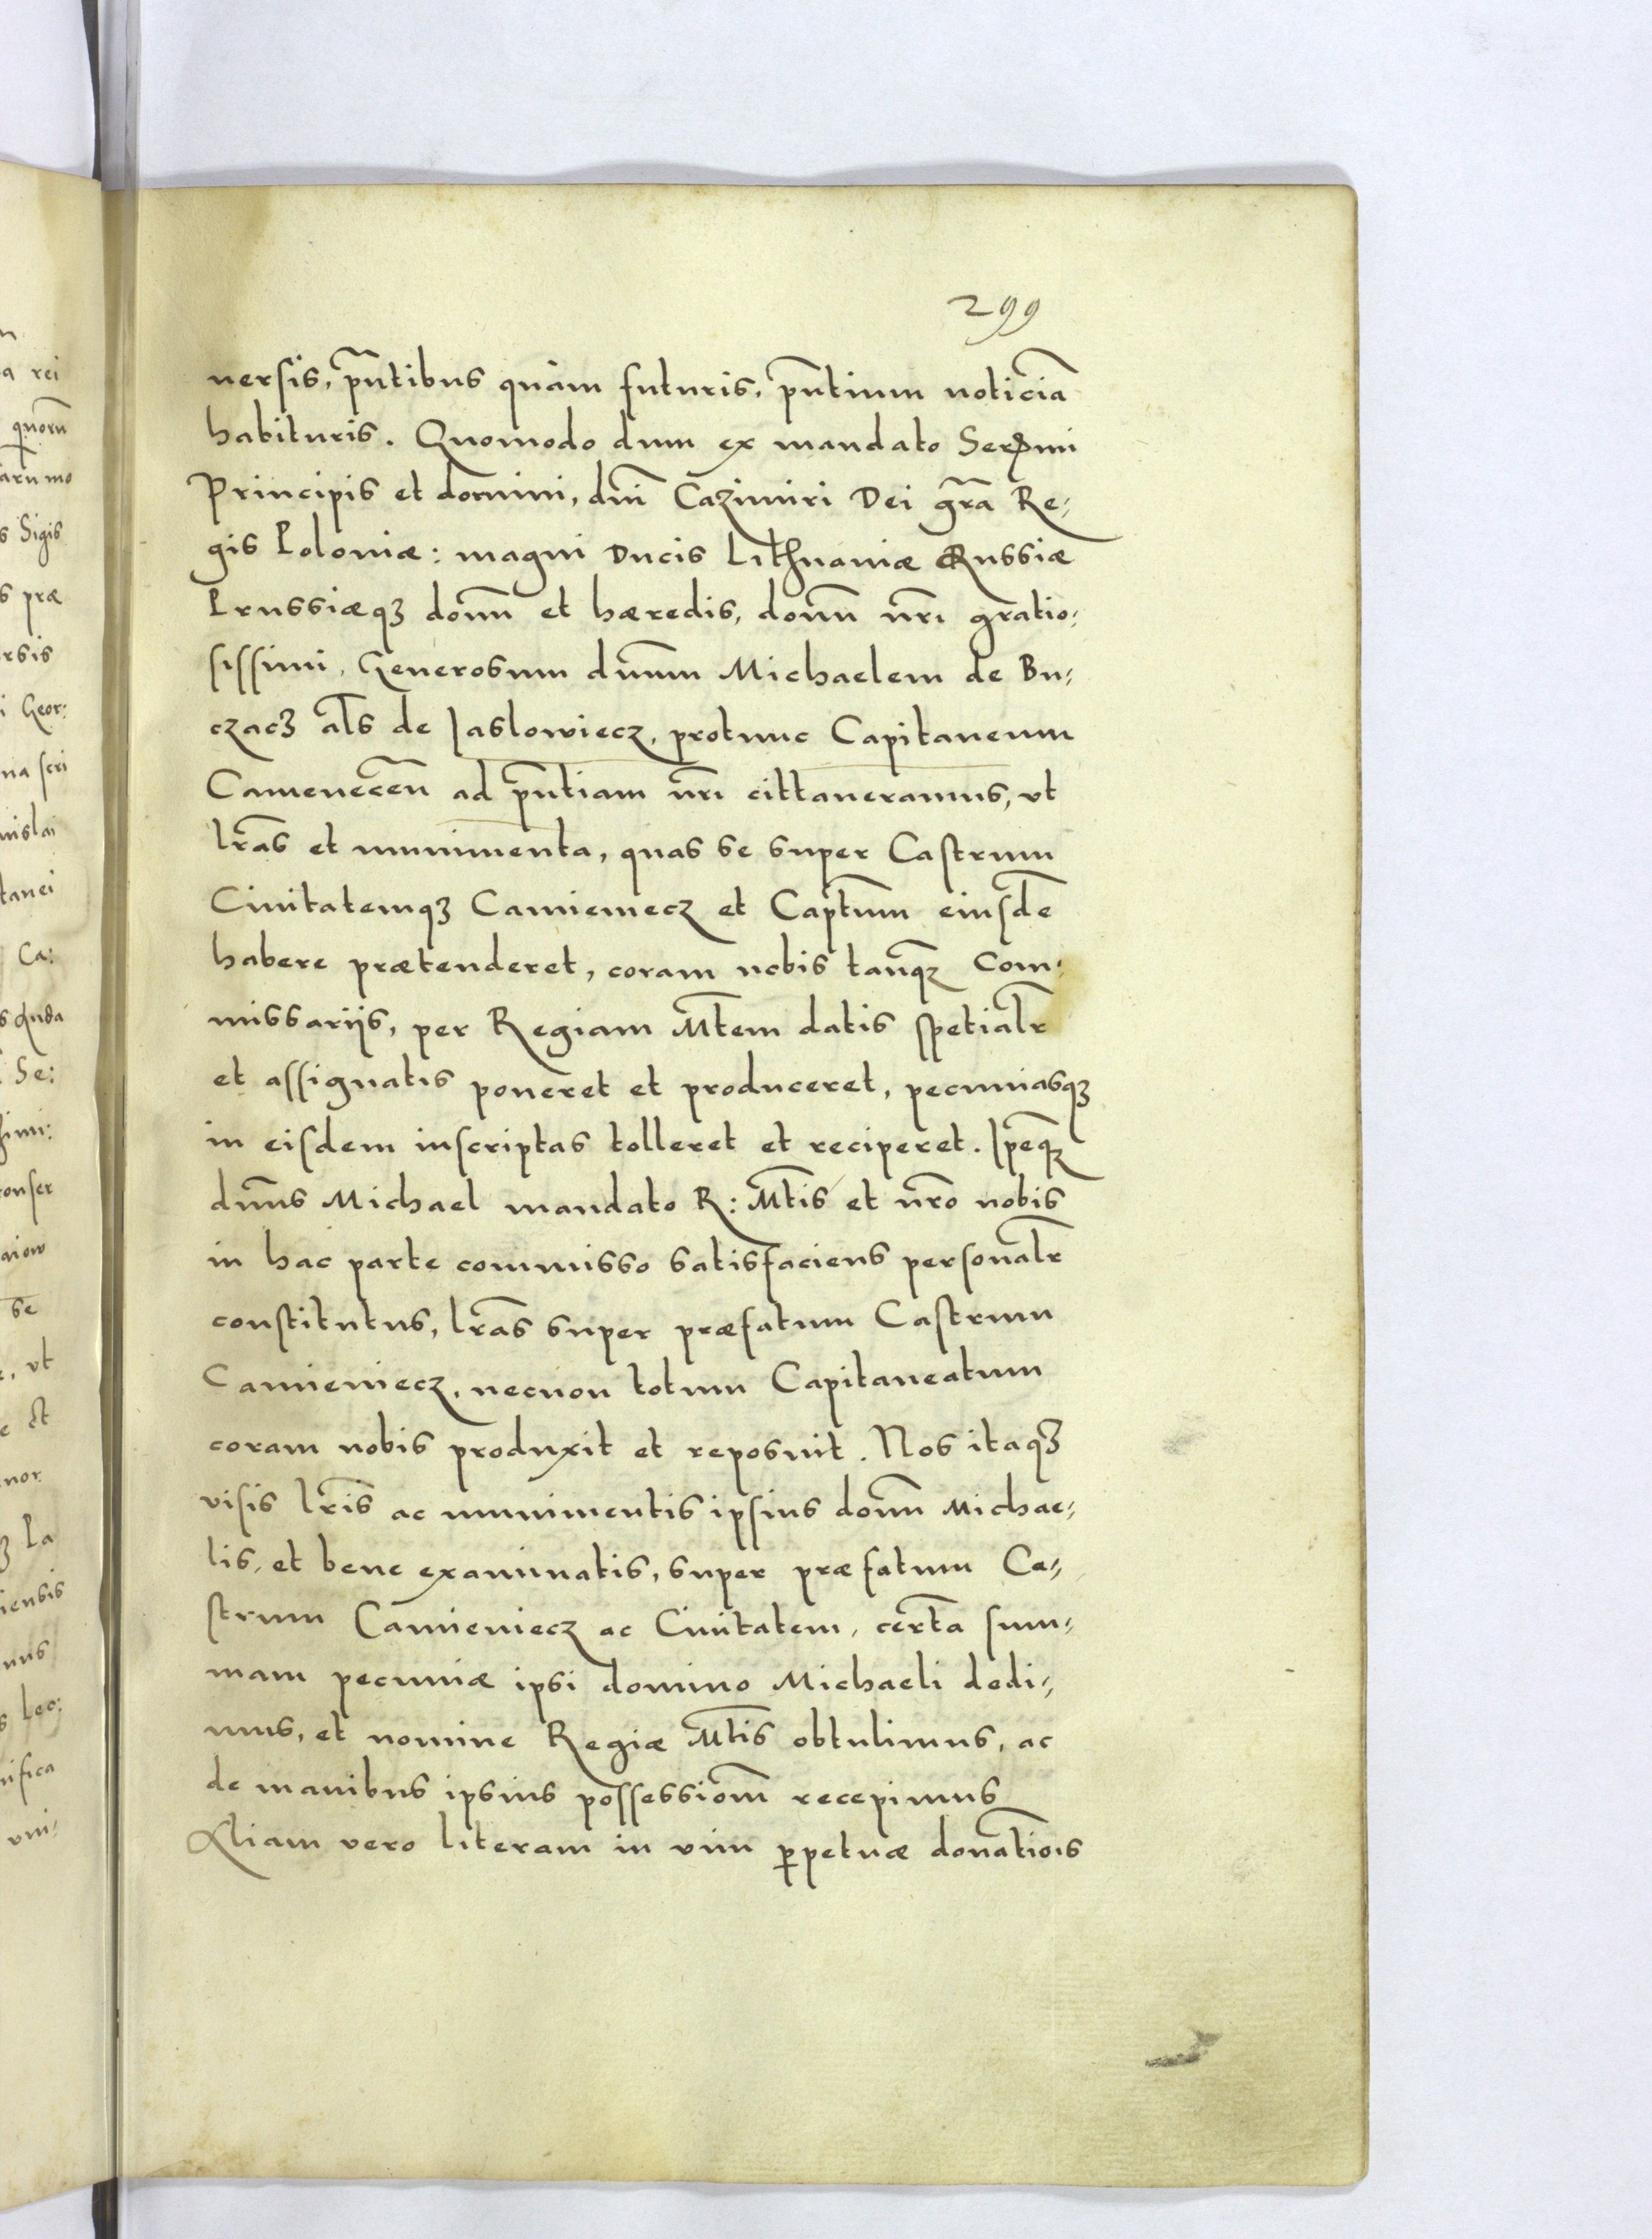 299
uersis, pñtibus quàm futuris, pñtium noticiã
habituris. Quomodo dum ex mandato Serᵐⁱ
Principis et domini, dñi Cazimiri Dei grã Re-
gis Poloniæ: magni Ducis Lithuaniæ Russiæ
Prussiæqꝫ domñ et hæredis, domñ nr̃i gratio-
sissimi, Generosum dñum Michaelem de Bu-
czacz al̃s de Jaslowiecz, protunc Capitaneum
Camenecen̄ ad pñtiam nr̃i cittaueramus, vt
lr̃as et munimenta, quas se super Castrum
Ciuitatemqꝫ Camieniecz et Captm̃ eiusdẽ
habere prætenderet, coram nobis tanqꝫ Com-
missarijs, per Regiam Mt̃em datis spetialr̃
et assignatis poneret et produceret, pecuniasqꝫ
in eisdem inscriptas tolleret et reciperet. Ipẽqꝫ
dñus Michael mandato R: Mt̃is et nr̃o nobis
in hac parte commisso satisfaciens personalr̃
constitutus, lr̃as super præfatum Castrum
Camieniecz, necnon totum Capitaneatum
coram nobis produxit et reposuit. Nos itaqꝫ
visis lr̃is ac munimentis ipsius domñ Michae-
lis, et bene examinatis, super præfatum Ca-
strum Camieniecz ac Ciuitatem, certã sum-
mam pecuniæ ipsi domino Michaeli dedi-
mus, et nomine Regiæ Mt̃is obtulimus, ac
de manibus ipsius possessiom̃ recepimus
Aliam vero literam in vim ꝑpetuæ donatiõis